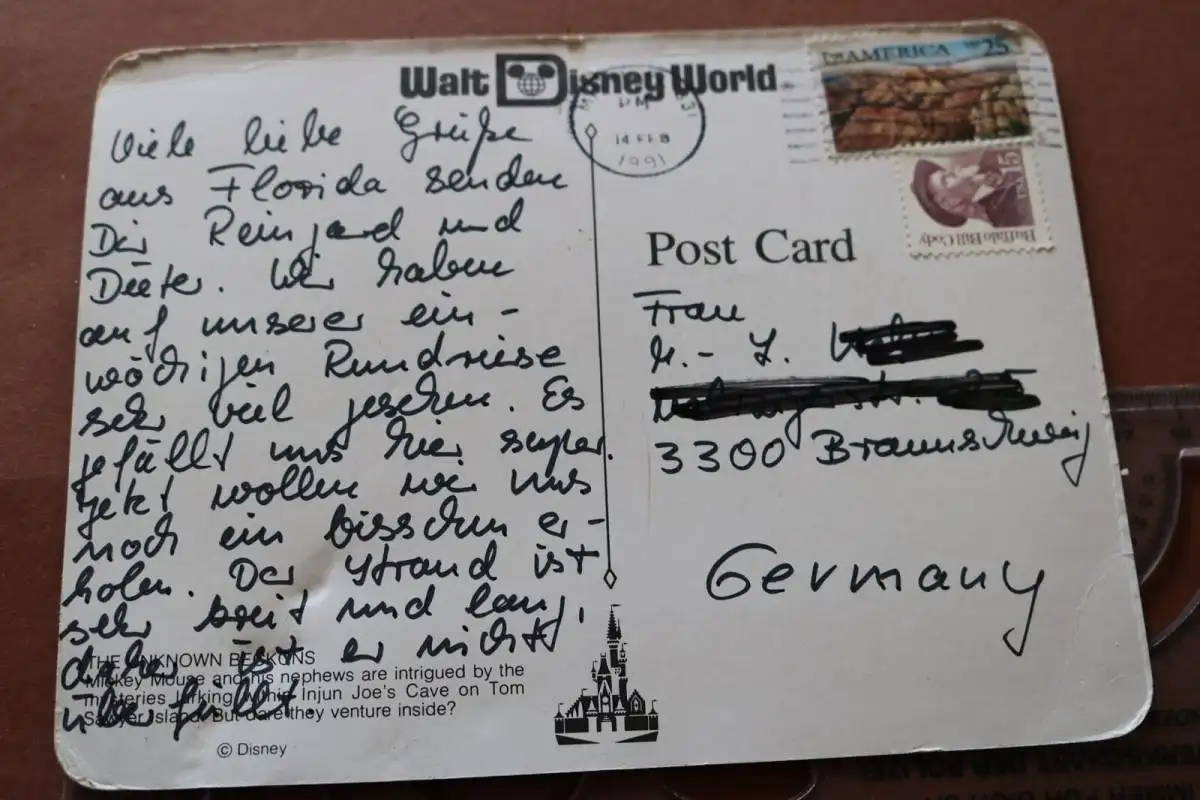 Walt Disney World
Viele liebe Grüße
aus Florida senden
Dir Reingard und
Dieter. Wir haben
auf unserer ein-
wöchigen Rundreise
sehr viel gesehen. Es
gefällt uns hier super.
Jetzt wollen wir uns
noch ein bisschen er-
holen. Der Strand ist
sehr breit und lang,
daher ist er nicht
überfüllt.
THE UNKNOWN BECKONS
Mickey Mouse and his nephews are intrigued by the
mysteries lurking within Injun Joe's Cave on Tom
Sawyer Island. But dare they venture inside?
© Disney
PM
14 FEB
1991
AMERICA 25
15
Buffalo Bill Cody
Post Card
Frau
3300 Braunschweig
Germany